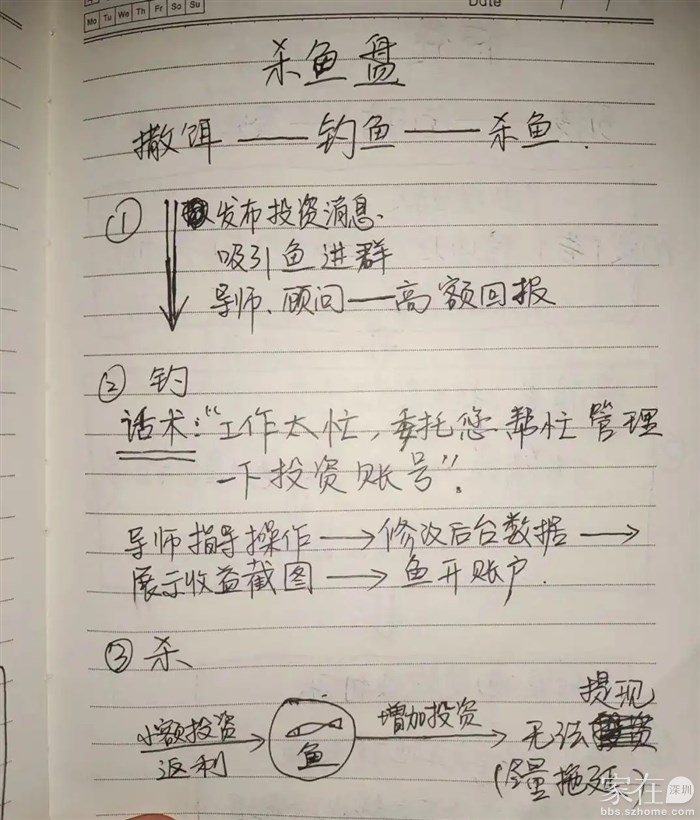 Mo Tu We Th Fr Sa Su
Date / /
杀鱼盘
撒饵——钓鱼——杀鱼.
① 发布投资消息.
吸引鱼进群
导师、顾问—高额回报
② 钓
话术:“工作太忙,委托您帮忙管理
一下投资账号”.
导师指导操作→修改后台数据→
展示收益截图→鱼开账户.
③ 杀
小额投资 返利 → 鱼 增加投资 → 无法提现
(尽量拖延)
家在深圳
bbs.szhome.com